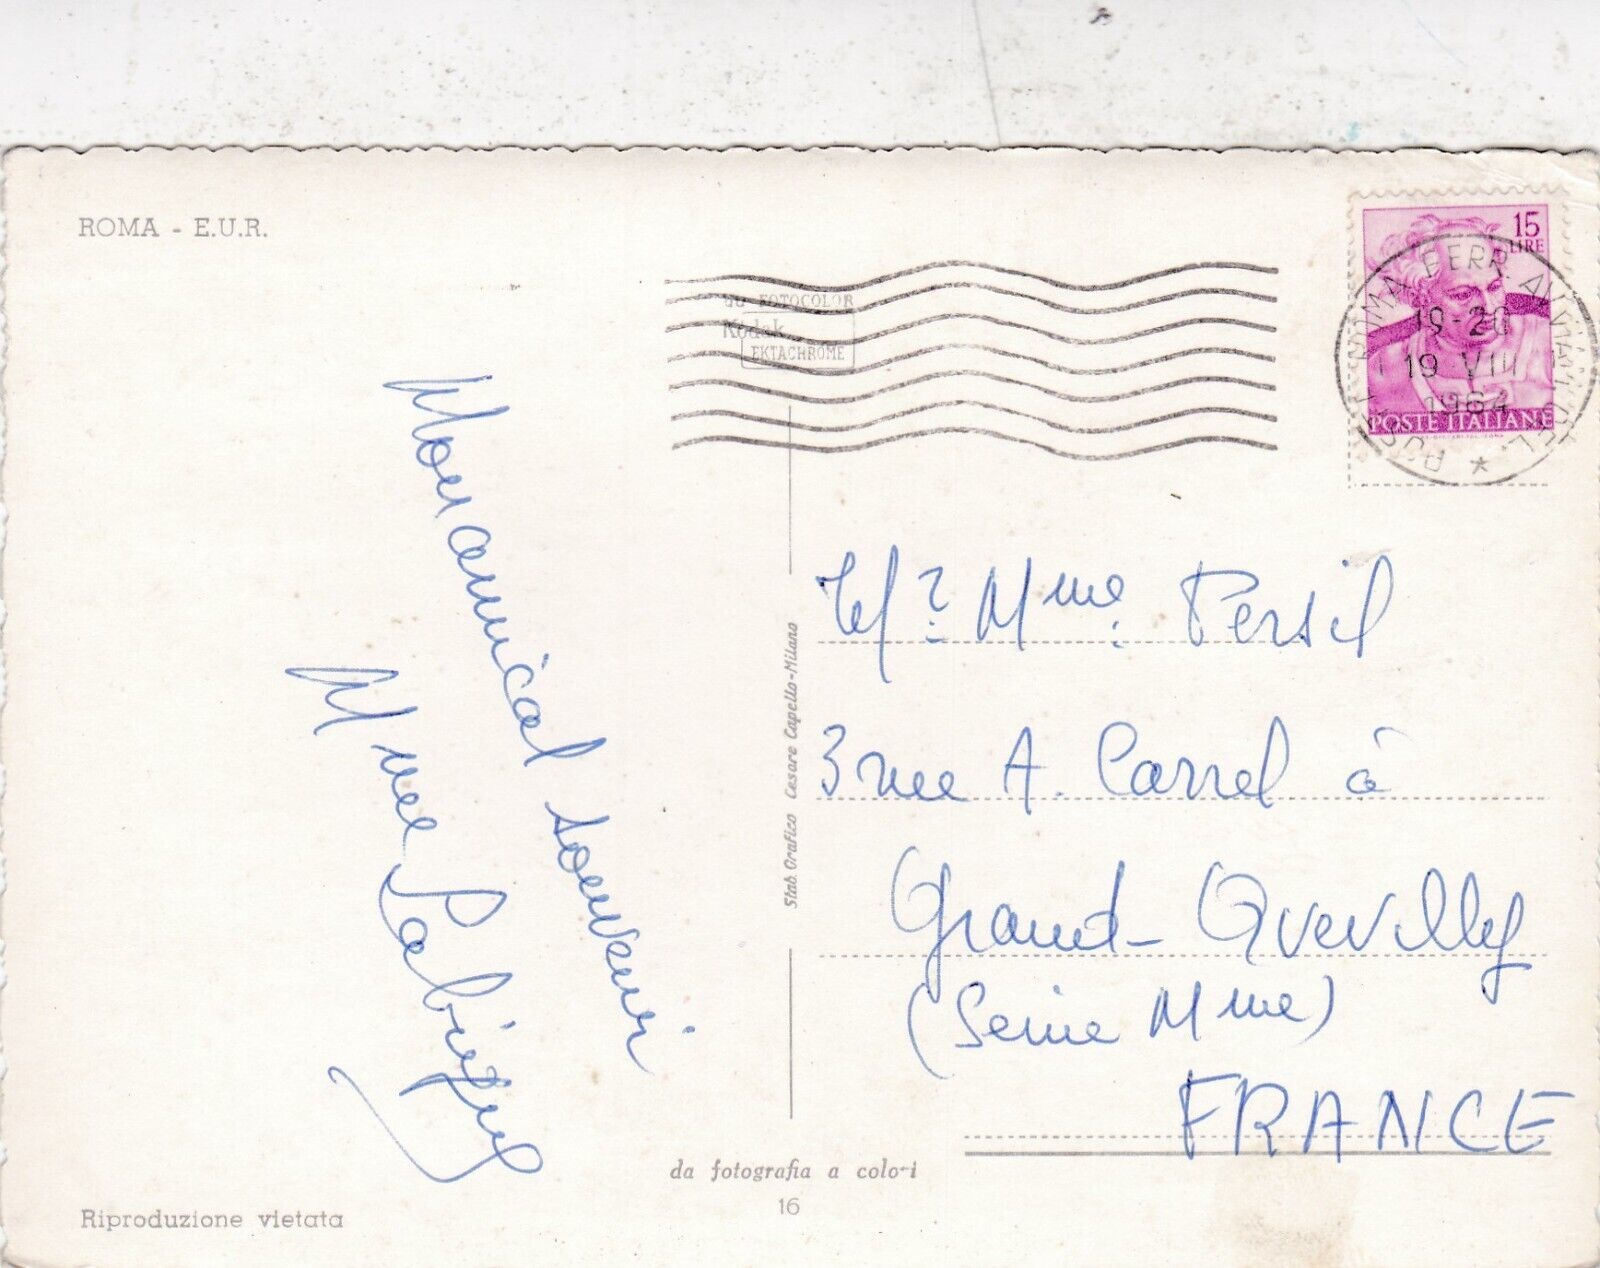 ROMA - E.U.R.
FOTOCOLOR
Kodak
EKTACHROME
15
LIRE
POSTE ITALIANE
ROMA FERR.
19-20
19 VIII
1964
Mon amical souvenir
Mme
Mr? Mme. Persil
3 rue A. Carrel à
Grand-Quevilly
(Seine Mme)
FRANCE
Stab. Grafico Cesare Capello-Milano
da fotografia a colori
16
Riproduzione vietata